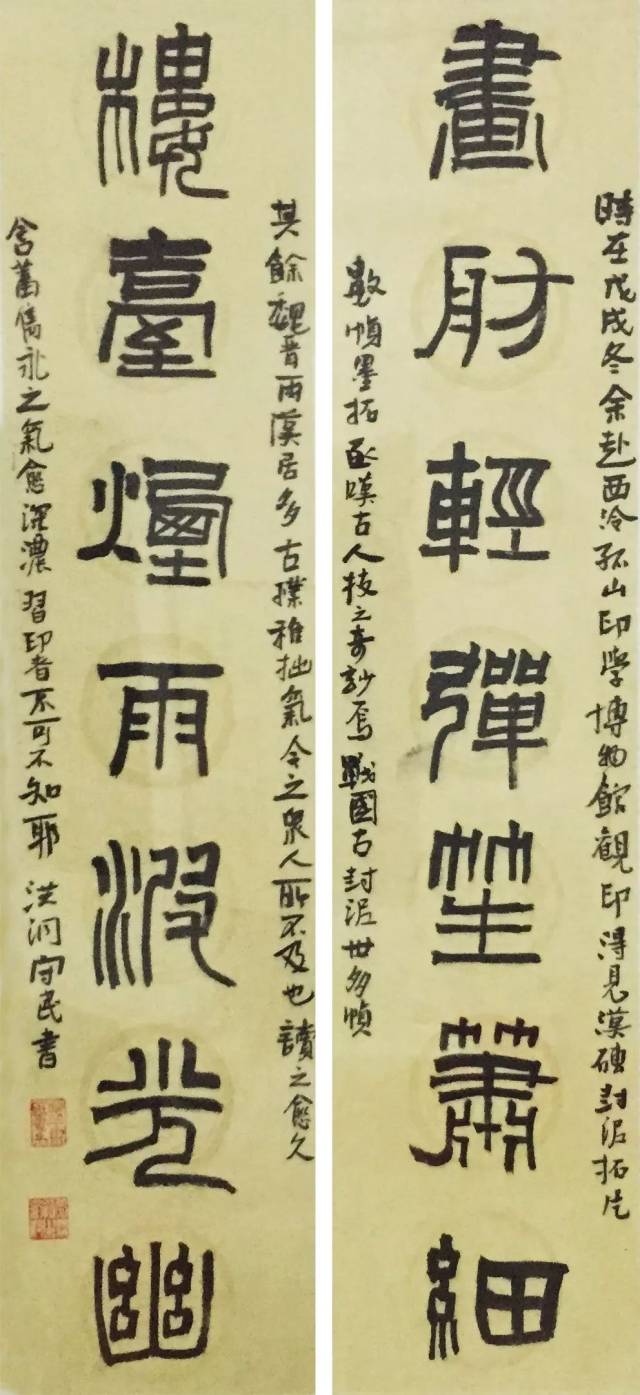 時在戊戌冬余赴西泠孤山印學博物館觀印得見漢磚封泥拓片
畫舫輕彈笙簫細
數幀墨拓亟嘆古人技之奇妙焉戰國古封泥世多幀
其餘魏晉兩漢居多古樸稚拙氣今之衆人所不及也讀之愈久
樓臺煙雨波光幽
含蓄雋永之氣愈深濃習印者不可不知耶洪洞守民書